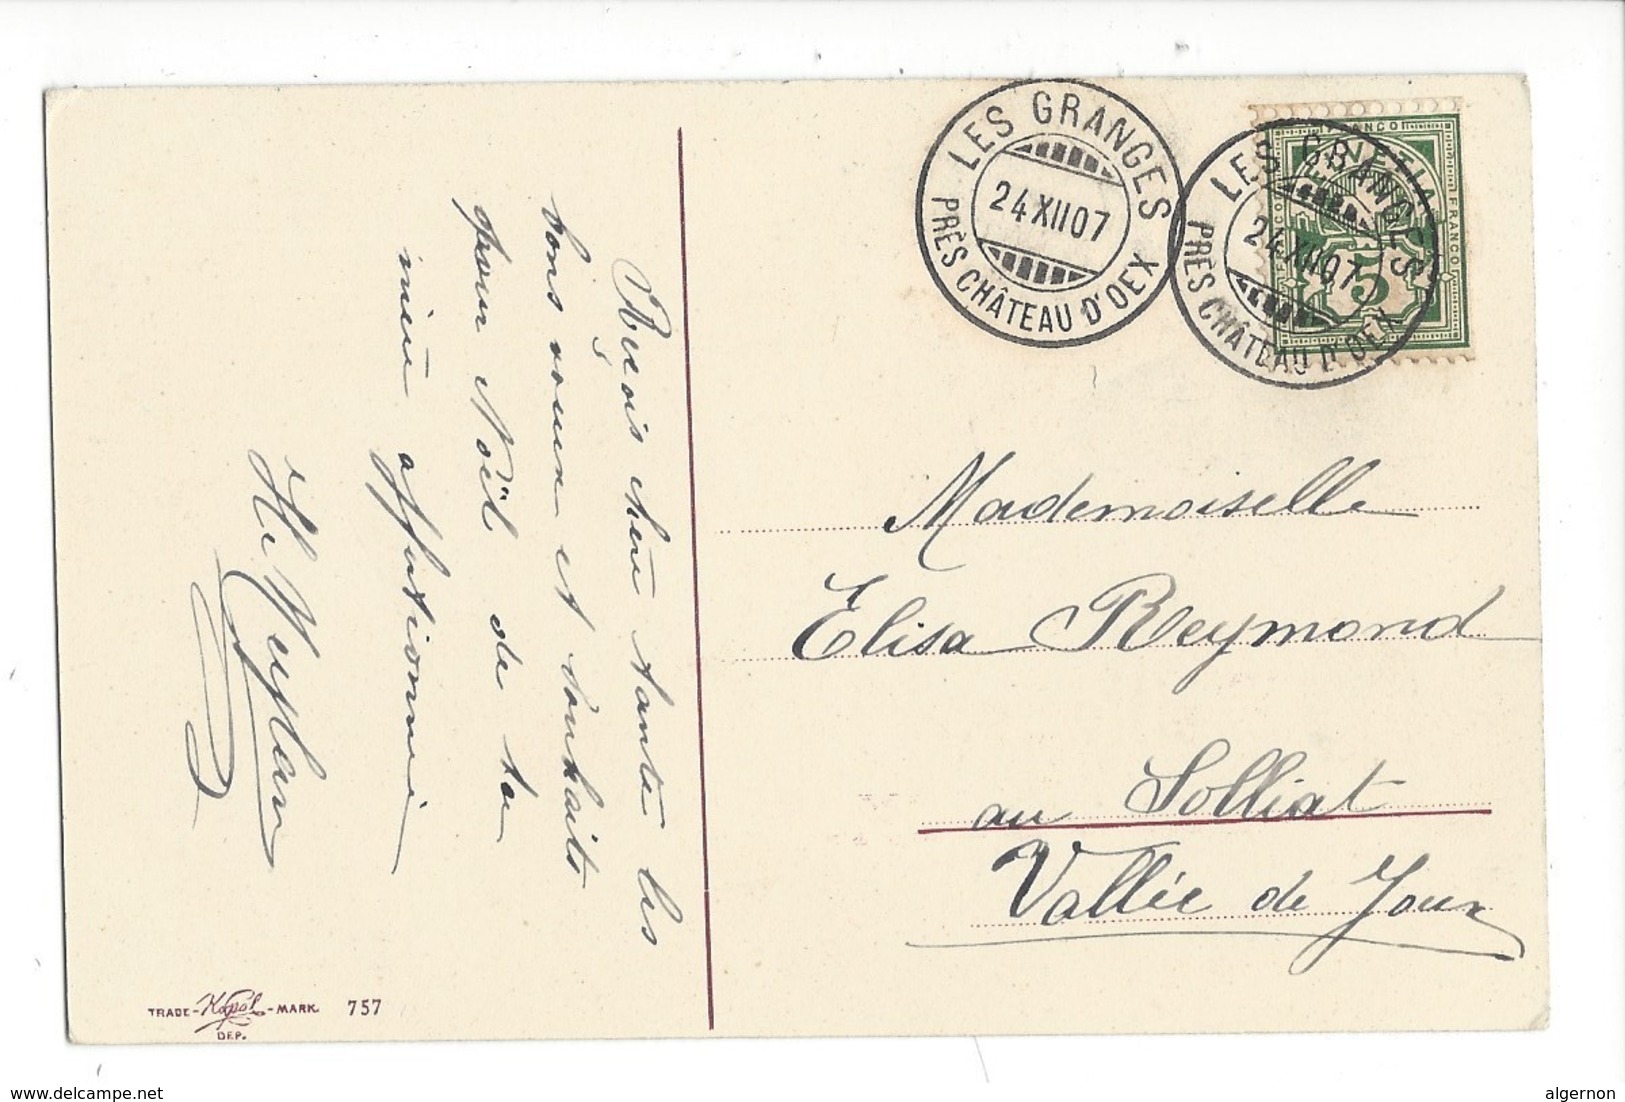 Reçois chère tante les
bons vœux et souhaits
pour Noël de ta
nièce affectionnée
LES GRANGES
24 XII 07
PRÈS CHÂTEAU D'OEX
LES GRANGES
24 XII 07
PRÈS CHÂTEAU D'OEX
FRANCO
HELVETIA
FRANCO
5
Mademoiselle
Elisa Reymond
au Solliat
Vallée de Joux
TRADE - Kopal - MARK 757
DEP.
www.delcampe.net
algernon